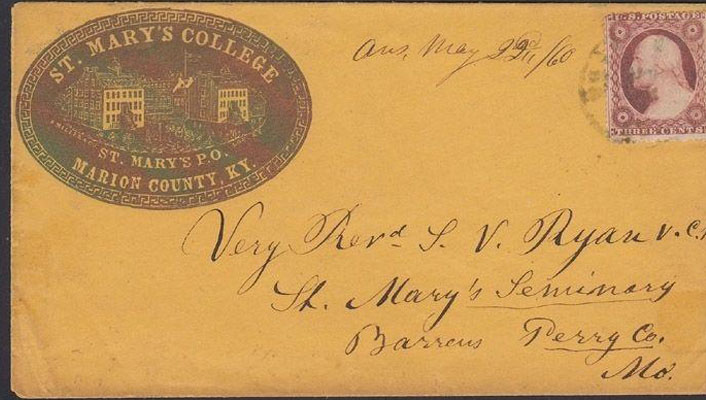 ST. MARY'S COLLEGE
ST. MARY'S P.O.
MARION COUNTY, KY.
Ans, May 22d/60
U.S. POSTAGE
THREE CENTS
Very Revd S. V. Ryan v.c.
St. Mary's Seminary
Barrens Perry Co.
Mo.